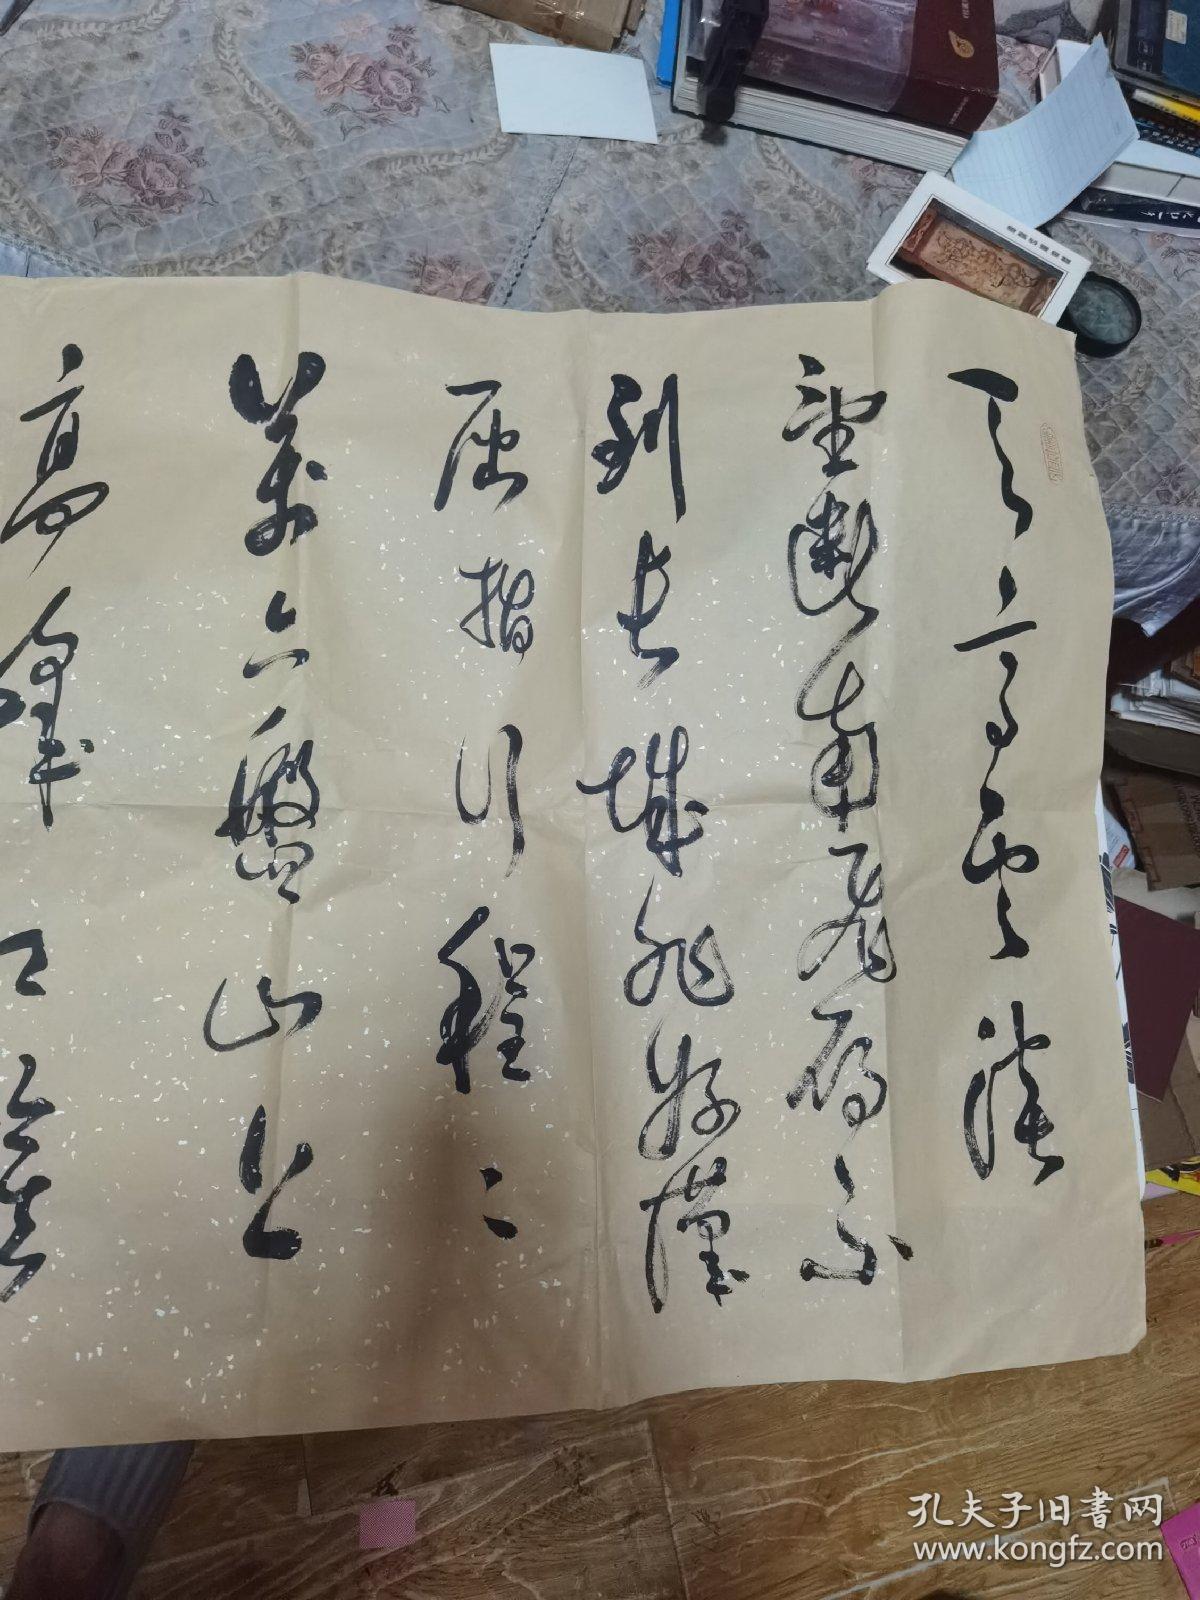 天高云淡
望断南飞雁不
到长城非好漢
屈指行程二
萬六盤山上
高峰红旗
孔夫子旧书网
www.kongfz.com